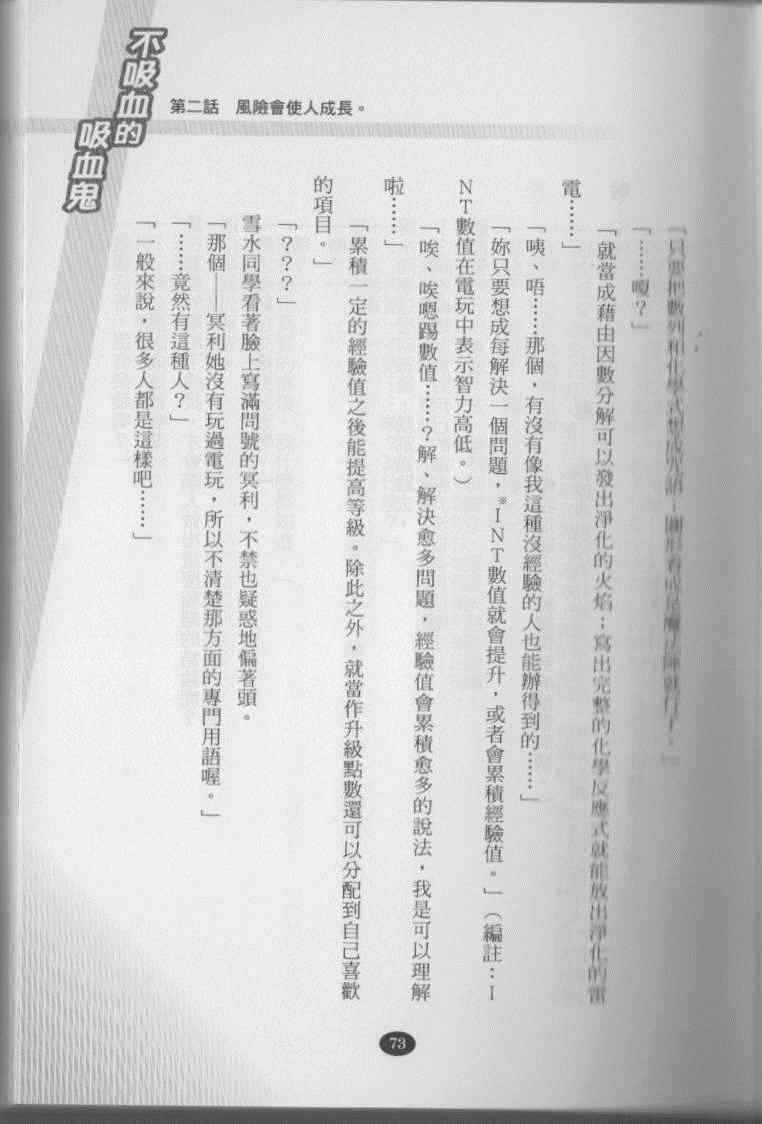 不吸血的
吸血鬼
第二話　風險會使人成長。
「只要把數列和化學式想成咒語，圖形看成是魔法陣就行了。」
「……嗄？」
「就當成藉由因數分解可以發出淨化的火焰；寫出完整的化學反應式就能放出淨化的雷
電……」
「咦、唔……那個，有沒有像我這種沒經驗的人也能辦得到的……」
「妳只要想成每解決一個問題，※INT數值就會提升，或者會累積經驗值。」（編註：I
NT數值在電玩中表示智力高低。）
「唉、唉嗯踢數值……？解、解決愈多問題，經驗值會累積愈多的說法，我是可以理解
啦……」
「累積一定的經驗值之後能提高等級。除此之外，就當作升級點數還可以分配到自己喜歡
的項目。」
「？？？」
雪水同學看著臉上寫滿問號的冥利，不禁也疑惑地偏著頭。
「那個——冥利她沒有玩過電玩，所以不清楚那方面的專門用語喔。」
「……竟然有這種人？」
「一般來說，很多人都是這樣吧……」
73